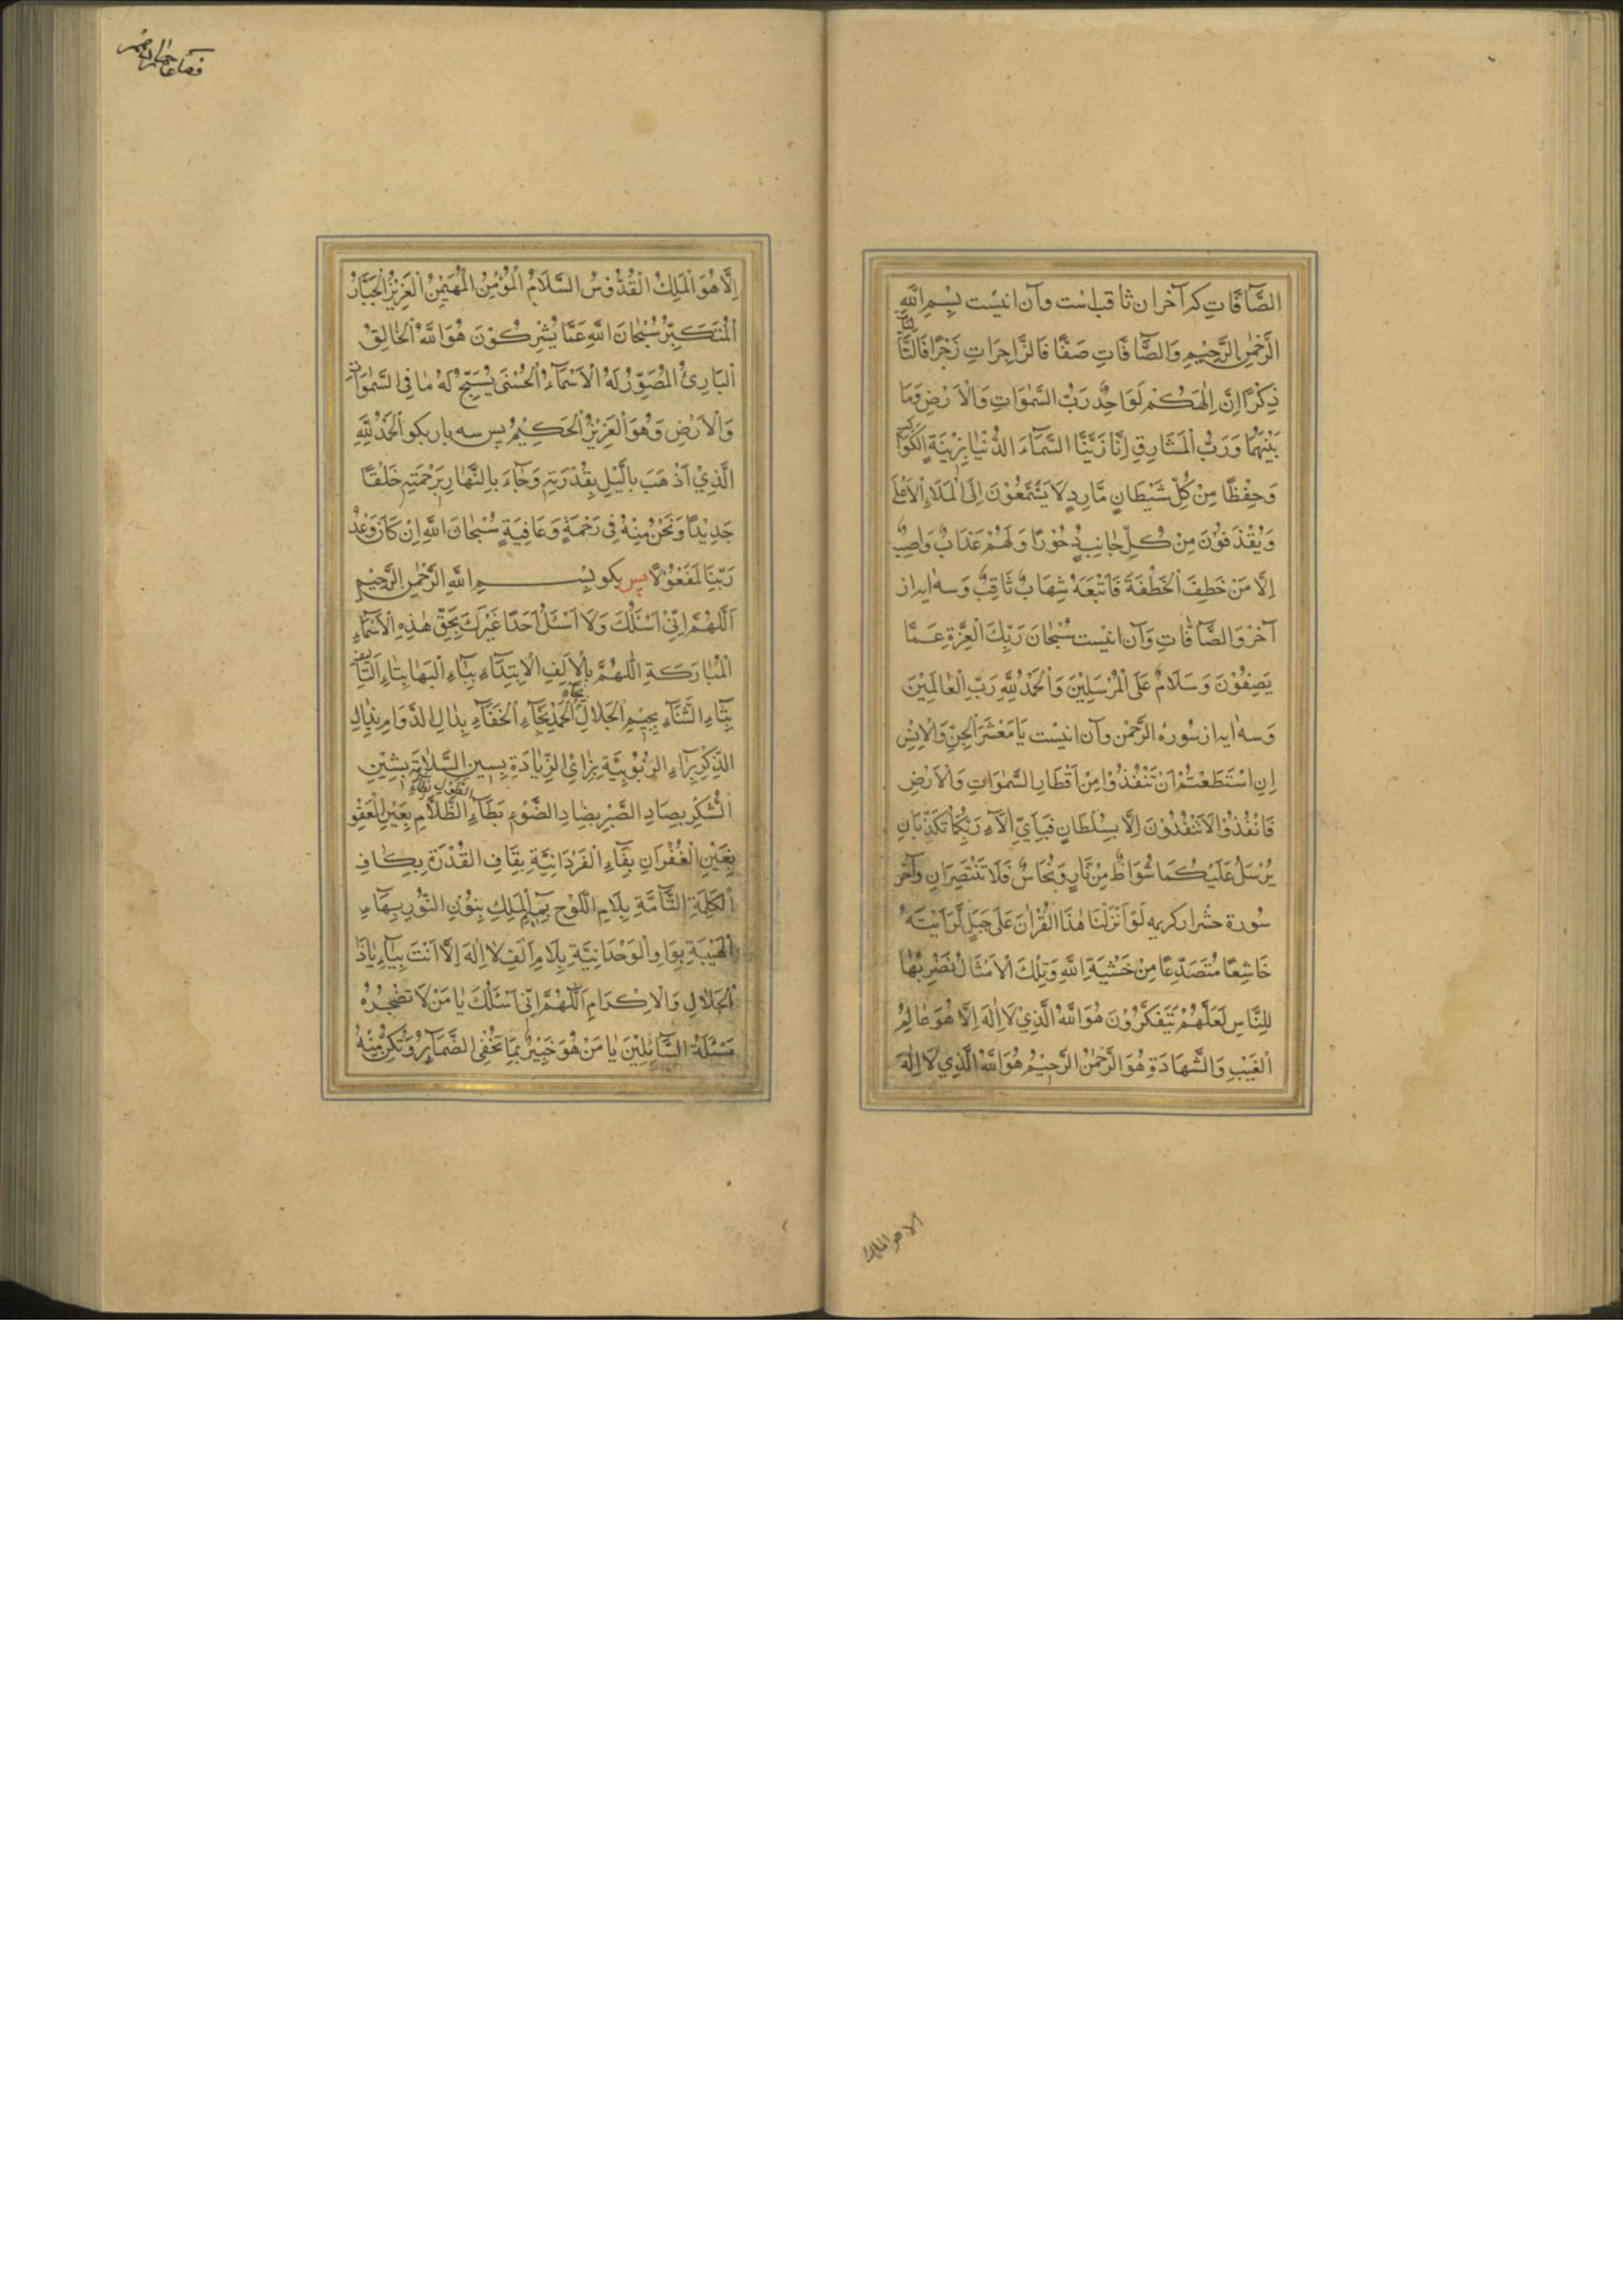 الصَّآفَّاتِ كه آخر ان ثاقب است وآن اینست بِسْمِ اللّٰهِ
الرَّحْمٰنِ الرَّحِيْمِ وَالصَّآفَّاتِ صَفًّا فَالزَّاجِرَاتِ زَجْرًا فَالتَّالِيَاتِ
ذِكْرًا اِنَّ اِلٰهَكُمْ لَوَاحِدٌ رَبُّ السَّمٰوَاتِ وَالْاَرْضِ وَمَا
بَيْنَهُمَا وَرَبُّ الْمَشَارِقِ اِنَّا زَيَّنَّا السَّمَآءَ الدُّنْيَا بِزِيْنَةٍ الْكَوَاكِبِ
وَحِفْظًا مِنْ كُلِّ شَيْطَانٍ مَارِدٍ لَا يَسَّمَّعُوْنَ اِلَى الْمَلَاءِ الْاَعْلٰى
وَيُقْذَفُوْنَ مِنْ كُلِّ جَانِبٍ دُحُوْرًا وَلَهُمْ عَذَابٌ وَاصِبٌ
اِلَّا مَنْ خَطِفَ الْخَطْفَةَ فَاَتْبَعَهُ شِهَابٌ ثَاقِبٌ وَسه ایه از
آخر وَالصَّآفَّاتِ وَآن اینست سُبْحَانَ رَبِّكَ رَبِّ الْعِزَّةِ عَمَّا
يَصِفُوْنَ وَسَلَامٌ عَلَى الْمُرْسَلِيْنَ وَالْحَمْدُ لِلّٰهِ رَبِّ الْعَالَمِيْنَ
وَسه ایه از سُوره الرَّحْمٰن وآن اینست يَا مَعْشَرَ الْجِنِّ وَالْاِنْسِ
اِنِ اسْتَطَعْتُمْ اَنْ تَنْفُذُوْا مِنْ اَقْطَارِ السَّمٰوَاتِ وَالْاَرْضِ
فَانْفُذُوْا لَا تَنْفُذُوْنَ اِلَّا بِسُلْطَانٍ فَبِاَيِّ اٰلَآءِ رَبِّكُمَا تُكَذِّبَانِ
يُرْسَلُ عَلَيْكُمَا شُوَاظٌ مِنْ نَارٍ وَنُحَاسٌ فَلَا تَنْتَصِرَانِ وآخر
سُورة حشر از كريمه لَوْ اَنْزَلْنَا هٰذَا الْقُرْاٰنَ عَلٰى جَبَلٍ لَرَاَيْتَهُ
خَاشِعًا مُتَصَدِّعًا مِنْ خَشْيَةِ اللّٰهِ وَتِلْكَ الْاَمْثَالُ نَضْرِبُهَا
لِلنَّاسِ لَعَلَّهُمْ يَتَفَكَّرُوْنَ هُوَ اللّٰهُ الَّذِيْ لَا اِلٰهَ اِلَّا هُوَ عَالِمُ
الْغَيْبِ وَالشَّهَادَةِ هُوَ الرَّحْمٰنُ الرَّحِيْمُ هُوَ اللّٰهُ الَّذِي لَا اِلٰهَ
الا هو الملك
اِلَّا هُوَ الْمَلِكُ الْقُدُّوْسُ السَّلَامُ الْمُؤْمِنُ الْمُهَيْمِنُ الْعَزِيْزُ الْجَبَّارُ
الْمُتَكَبِّرُ سُبْحَانَ اللّٰهِ عَمَّا يُشْرِكُوْنَ هُوَ اللّٰهُ الْخَالِقُ
الْبَارِئُ الْمُصَوِّرُ لَهُ الْاَسْمَآءُ الْحُسْنٰى يُسَبِّحُ لَهُ مَا فِى السَّمٰوَاتِ
وَالْاَرْضِ وَهُوَ الْعَزِيْزُ الْحَكِيْمُ پس سه بار بكو الْحَمْدُ لِلّٰهِ
الَّذِيْ اَذْهَبَ بِالَّيْلِ بِقُدْرَتِهِ وَجَآءَ بِالنَّهَارِ بِرَحْمَتِهِ خَلْقًا
جَدِيْدًا وَنَحْنُ مِنْهُ فِى رَحْمَةٍ وَعَافِيَةٍ سُبْحَانَ اللّٰهِ اِنْ كَانَ وَعْدُ
رَبِّنَا لَمَفْعُوْلًا پس بكو بِسْمِ اللّٰهِ الرَّحْمٰنِ الرَّحِيْمِ
اَللّٰهُمَّ اِنِّىْ اَسْئَلُكَ وَلَا اَسْئَلُ اَحَدًا غَيْرَكَ بِحَقِّ هٰذِهِ الْاَسْمَآءِ
الْمُبَارَكَةِ اللّٰهُمَّ بِالْاَلِفِ الْاِبْتِدَآءِ بِبَآءِ الْبَهَا بِتَآءِ
بِثَآءِ الثَّنَآءِ بِجِيْمِ الْجَلَالِ بِحَآءِ الْحَمْدِ بِخَآءِ الْخَفَآءِ بِدَالِ الدَّوَامِ بِذَالِ
الذِّكْرِ بِرَآءِ الرُّبُوْبِيَّةِ بِزَائِ الزِّيَادَةِ بِسِينِ السَّلَامَةِ بِشِيْنِ
الشُّكْرِ بِصَادِ الصَّبْرِ بِضَادِ الضَّوْءِ بِطَآءِ بِظَآءِ الظَّلَامِ بِعَيْنِ الْعَفْوِ
بِغَيْنِ الْغُفْرَانِ بِفَآءِ الْفَرْدَانِيَّةِ بِقَافِ الْقُدْرَةِ بِكَافِ
الْكَلِمَةِ التَّآمَّةِ بِلَامِ اللَّوْحِ بِمِيْمِ الْمَلِكِ بِنُوْنِ النُّوْرِ بِهَآءِ
الْهَيْبَةِ بِوَاوِ الْوَحْدَانِيَّةِ بِلَامِ اَلِفِ لَا اِلٰهَ اِلَّا اَنْتَ بِيَآءِ يَاذَا
الْجَلَالِ وَالْاِكْرَامِ اَللّٰهُمَّ اِنِّى اَسْئَلُكَ يَا مَنْ لَا تَضْجُرُهُ
مَسْئَلَةُ السَّآئِلِيْنَ يَا مَنْ هُوَ خَبِيْرٌ بِمَا تُخْفِى الضَّمَآئِرُ وَتُكِنُّ مِنْهُ